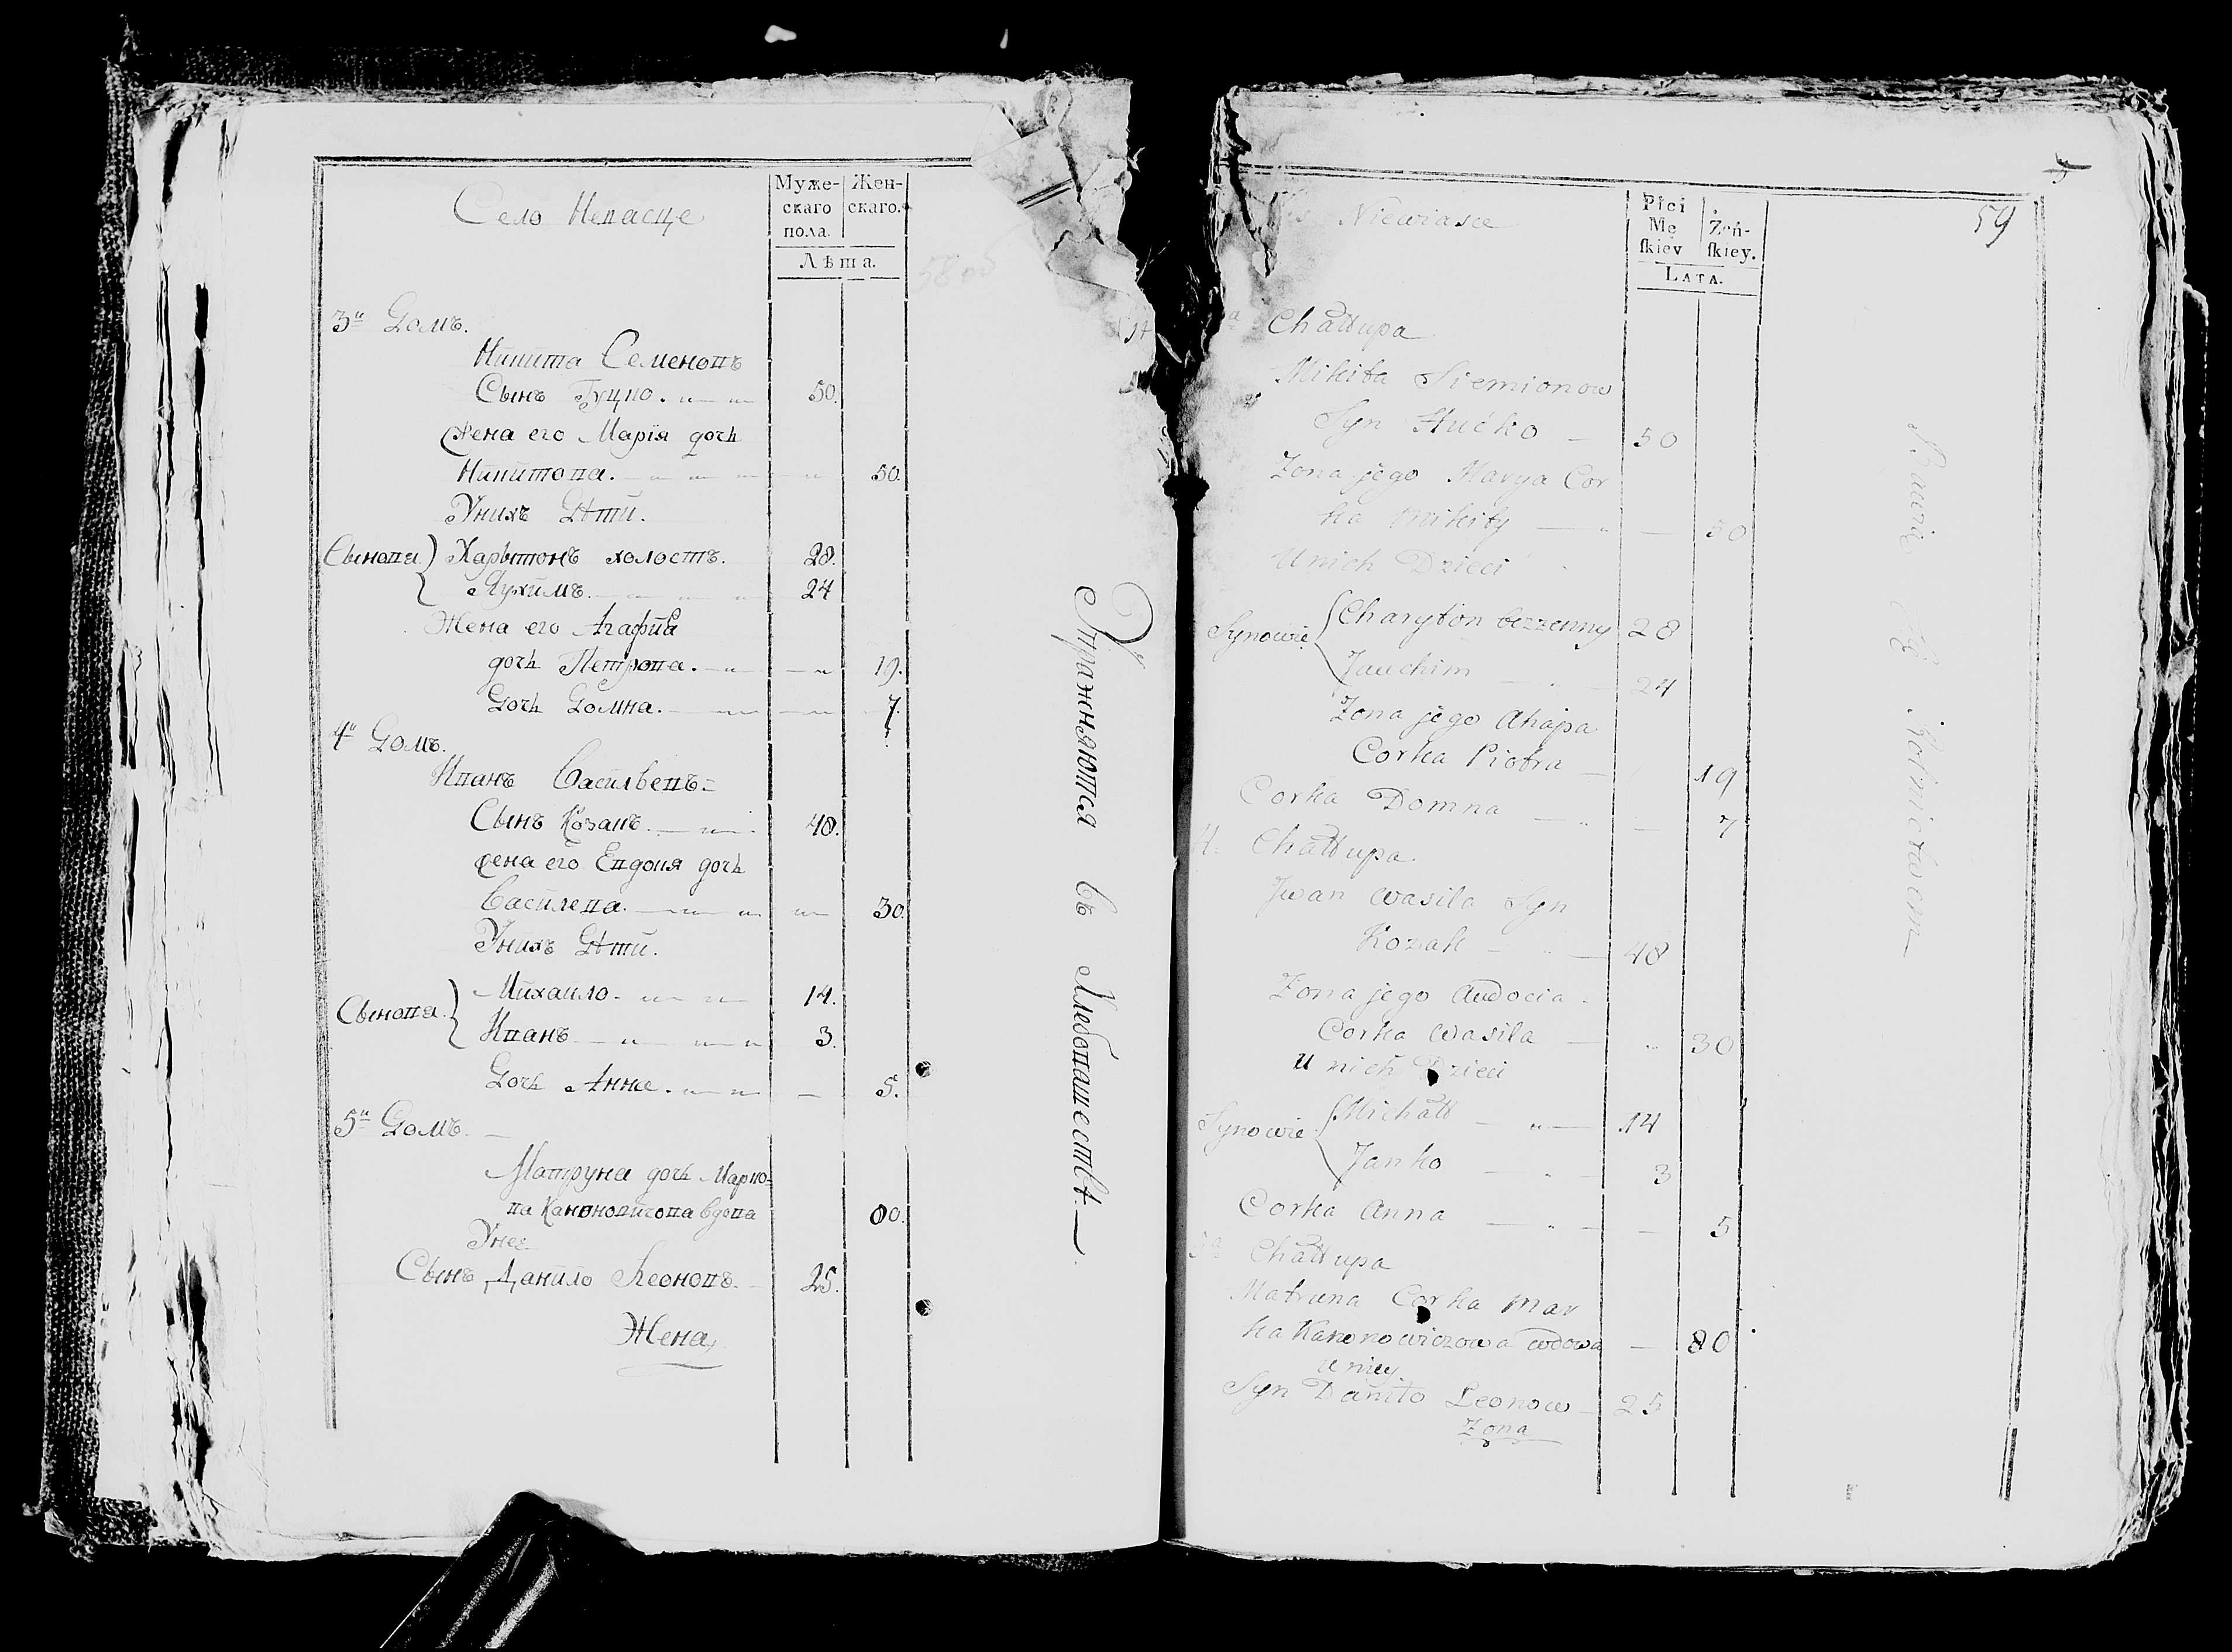 Село Невасце
Муже-
скаго
пола.
Жен-
скаго.
Лѣта.
58 об
3й Домъ.
Никита Семеновъ
Сынъ Гуцко. 50.
Жена его Марія дочь
Никитова. 50.
У нихъ Дѣти.
Сынова Харытонъ холостъ. 28.
Яухимъ. 24
Жена его Агафиа
дочь Петрова. 19.
Дочь Домна. 7.
4й Домъ.
Иванъ Васильевъ
Сынъ Козакъ. 48.
жена его Евдоия дочь
Василева. 30
У нихъ Дѣти.
Сынова Михаило. 14.
Иванъ 3.
Дочь Анна. 5.
5й Домъ.
Матруна дочь Марко-
ва Канановичова вдова 80.
У нее
Сынъ Данило Леоновъ. 25.
Жена
Упражняются въ Хлебопашествѣ.
59
Niewiasce
Płci
Mę
skiey
Żeń-
skiey.
LATA.
Chałłupa
Mikita Siemionow
Syn Hućko 50
Zona jego Marya Cor
ka Mikity 50
U nich Dzieci
Synowie Charyton bezzenny 28
Jauchim 24
Zona jego Ahapa
Corka Piotra 19
Corka Domna 7
4. Chałłupa.
Jwan Wasila Syn
Kozak 48
Zona jego Audocia
Corka Wasila 30
U nich Dzieci
Synowie Michałł 14
Janko 3
Corka Anna 5
5a Chałłupa
Matruna Corka Mar
ka Kanonowiczowa wdowa 80
U niey
Syn Daniło Leonow 25
Zona
Rolnictwem